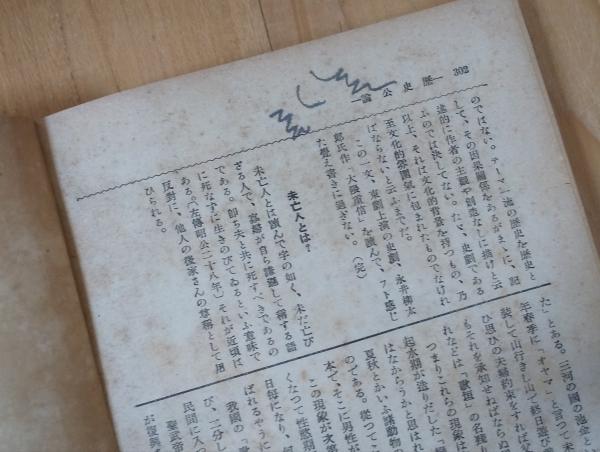 302 ―歷史公論―
のではない。テーマ一流の歷史を歷史と
して、その因果關係をあるがまゝに、記
述的に作者の主觀や創造なしに描けと云
ふのでは決してない。たゞ、史劇である
以上、それは文化的背景を持つもの、乃
至文化的雰圍氣に包まれたものでなけれ
ばならないと云ふまでだ。
この一文、東劇上演の史劇、永井柳太
郎氏作「大隈重信」を讀んで、フト感じ
た覺え書きに過ぎない。(完)
未亡人とは?
未亡人とは讀んで字の如く、未だ亡び
ざる人で、寡婦が自ら謙遜して稱する語
である。卽ち夫と共に死すべきであるの
に死なずに生きのびてゐるといふ意味で
ある。(左傳昭公二十八年)それが近頃は
反對に、他人の後家さんの尊稱として用
ひられる。
た」とある。三河の國の池金とい
年春季に「オヤマ」と言つて未
裝して山行きし山で終日遊び
ひ思ひの夫婦約束をすれば父
もそれを承知せねばならぬ
れなどは「歌垣」の名殘り
つまりこれらの現象は
起水期が造りだした「
はなからうかと思はれ
夏秋とかいふ諸動物の
のである。從つてこ
本で、そこに男性が
この現象が
くなつて性慾期
日每になり、
ばれるやうに
我國の「歌
び、二分し
聖武帝
民間に入つ
が復興